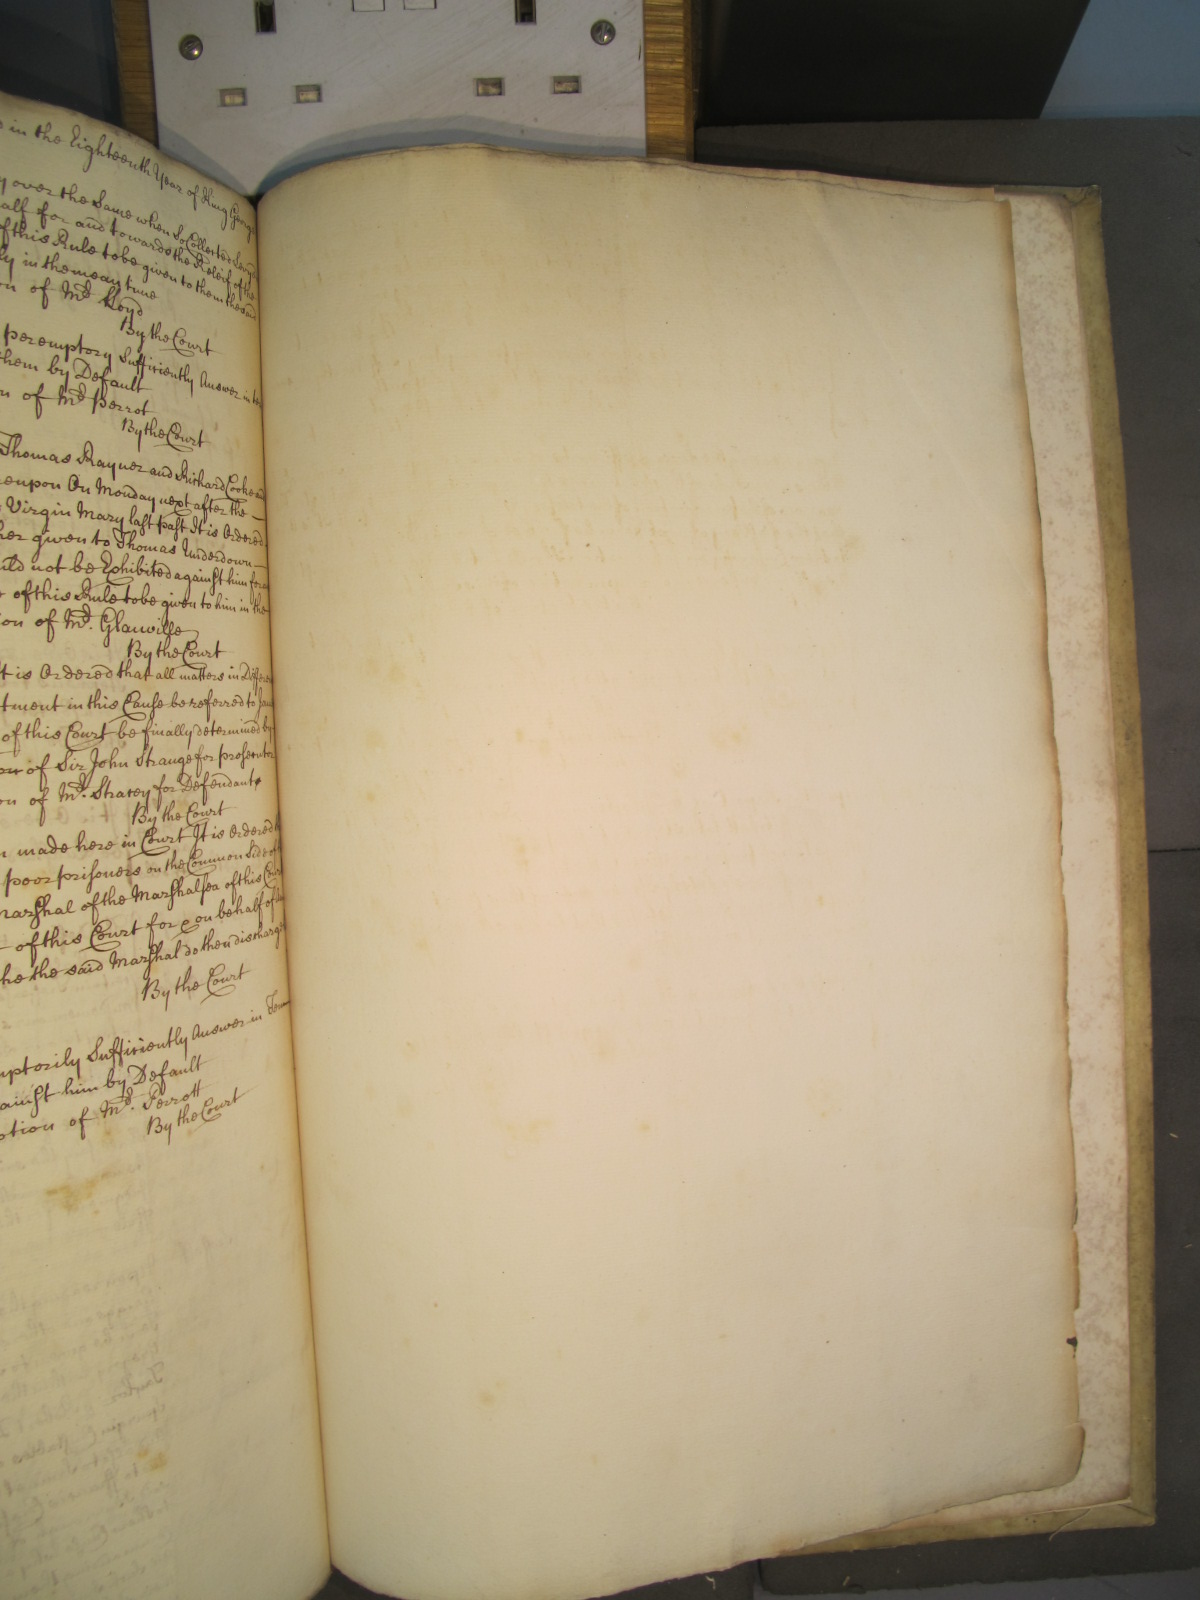 in the Eighteenth Year of King George
over the Same when So Collected
half for and towards the Releif of the
of this Rule to be given to them the said
in the mean time
of Mr. Lloyd
By the Court
peremptory Sufficiently Answer in
them by Default
of Mr. Perrot
By the Court
Thomas Rayner and Richard Cooke and
On Monday next after the
Virgin Mary last past It is Ordered
given to Thomas Underdown
not be Exhibited against him for
of this Rule to be given to him in the
of Mr. Glanville
By the Court
is Ordered that all matters in
in this Cause be referred to
of this Court be finally determined by
of Sir John Strange for prosecutor
of Mr. Stracey for Defendant
By the Court
made here in Court It is Ordered
poor prisoners on the Common Side of
Marshal of the Marshalsea of this Court
of this Court for & on behalf of
he the said Marshal do then discharge
By the Court
Sufficiently Answer in
him by Default
of Mr. Perrott
By the Court